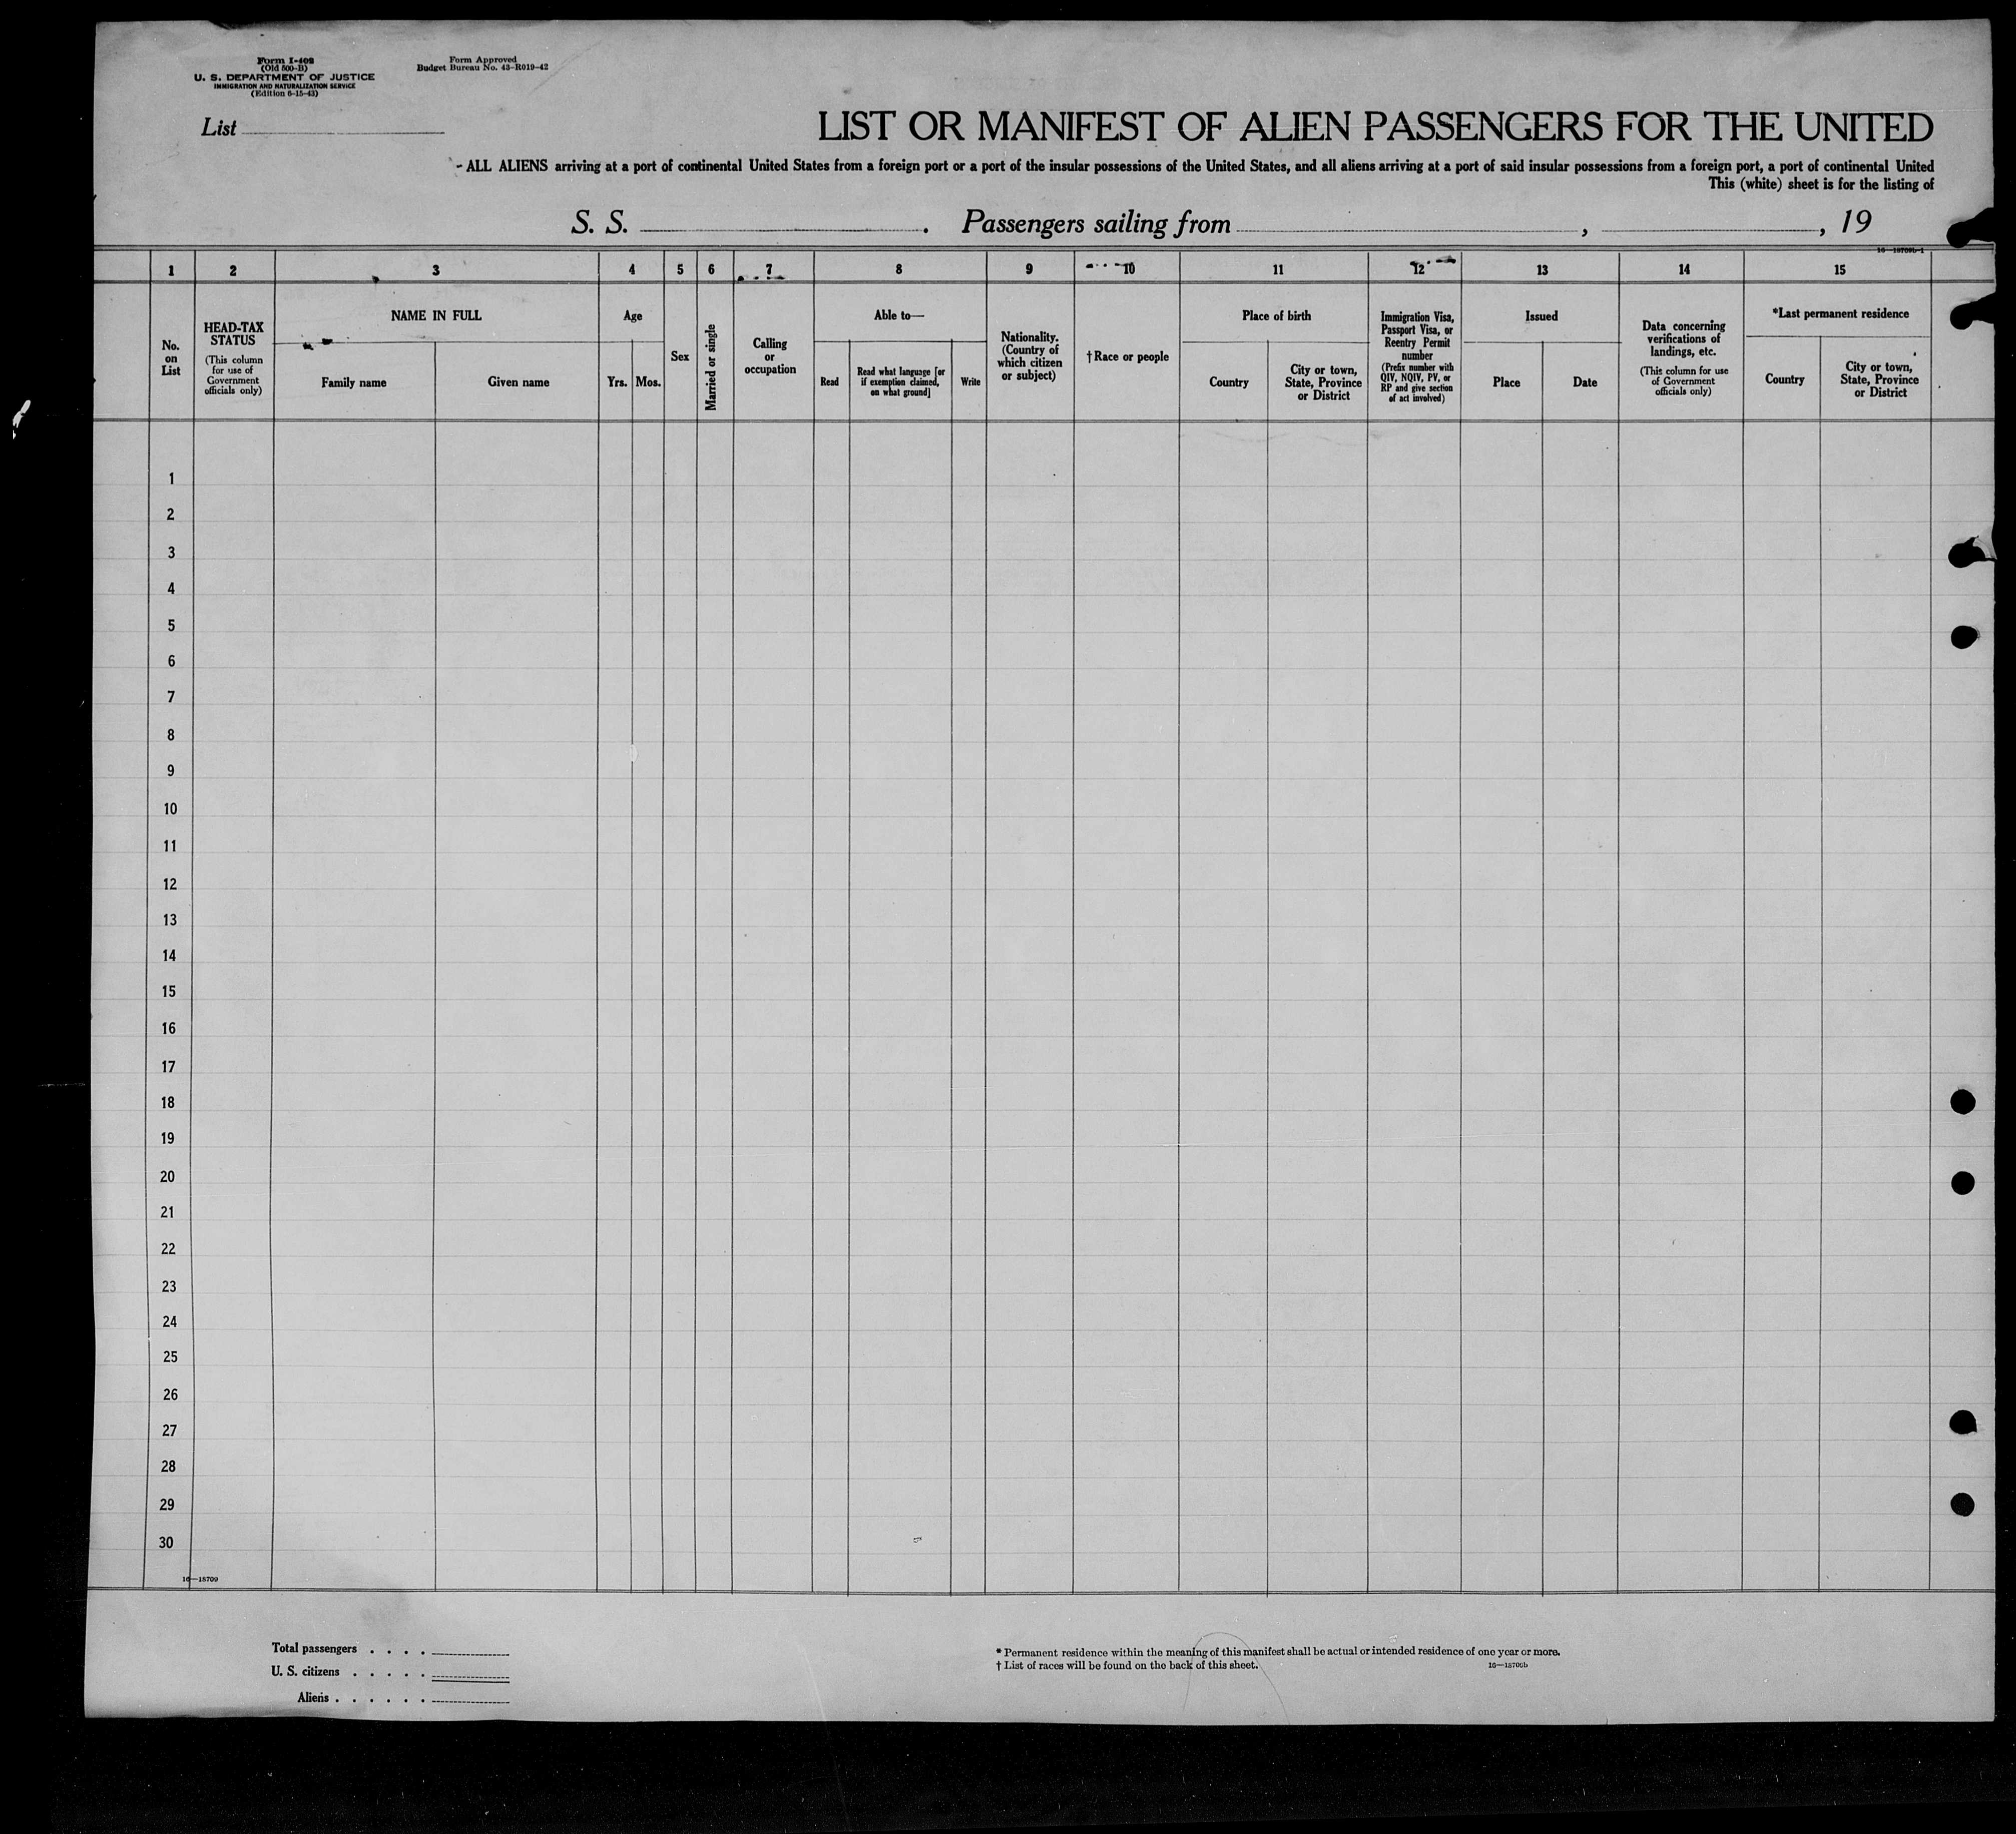 Form I-408
(Old 500-B)
U. S. DEPARTMENT OF JUSTICE
IMMIGRATION AND NATURALIZATION SERVICE
(Edition 6-15-43)
Form Approved
Budget Bureau No. 43-R019-42
List
LIST OR MANIFEST OF ALIEN PASSENGERS FOR THE UNITED
ALL ALIENS arriving at a port of continental United States from a foreign port or a port of the insular possessions of the United States, and all aliens arriving at a port of said insular possessions from a foreign port, a port of continental United
This (white) sheet is for the listing of
S. S. . Passengers sailing from , , 19
1 2 3 4 5 6 7 8 9 10 11 12 13 14 15
No.
on
List
HEAD-TAX
STATUS
(This column
for use of
Government
officials only)
NAME IN FULL
Family name
Given name
Age
Yrs.
Mos.
Sex
Married or single
Calling
or
occupation
Able to—
Read
Read what language [or
if exemption claimed,
on what ground]
Write
Nationality.
(Country of
which citizen
or subject)
†Race or people
Place of birth
Country
City or town,
State, Province
or District
Immigration Visa,
Passport Visa, or
Reentry Permit
number
(Prefix number with
QIV, NQIV, PV, or
RP and give section
of act involved)
Issued
Place
Date
Data concerning
verifications of
landings, etc.
(This column for use
of Government
officials only)
*Last permanent residence
Country
City or town,
State, Province
or District
1
2
3
4
5
6
7
8
9
10
11
12
13
14
15
16
17
18
19
20
21
22
23
24
25
26
27
28
29
30
16—18709
Total passengers . . . .
U. S. citizens . . . . .
Aliens . . . . . .
* Permanent residence within the meaning of this manifest shall be actual or intended residence of one year or more.
† List of races will be found on the back of this sheet.